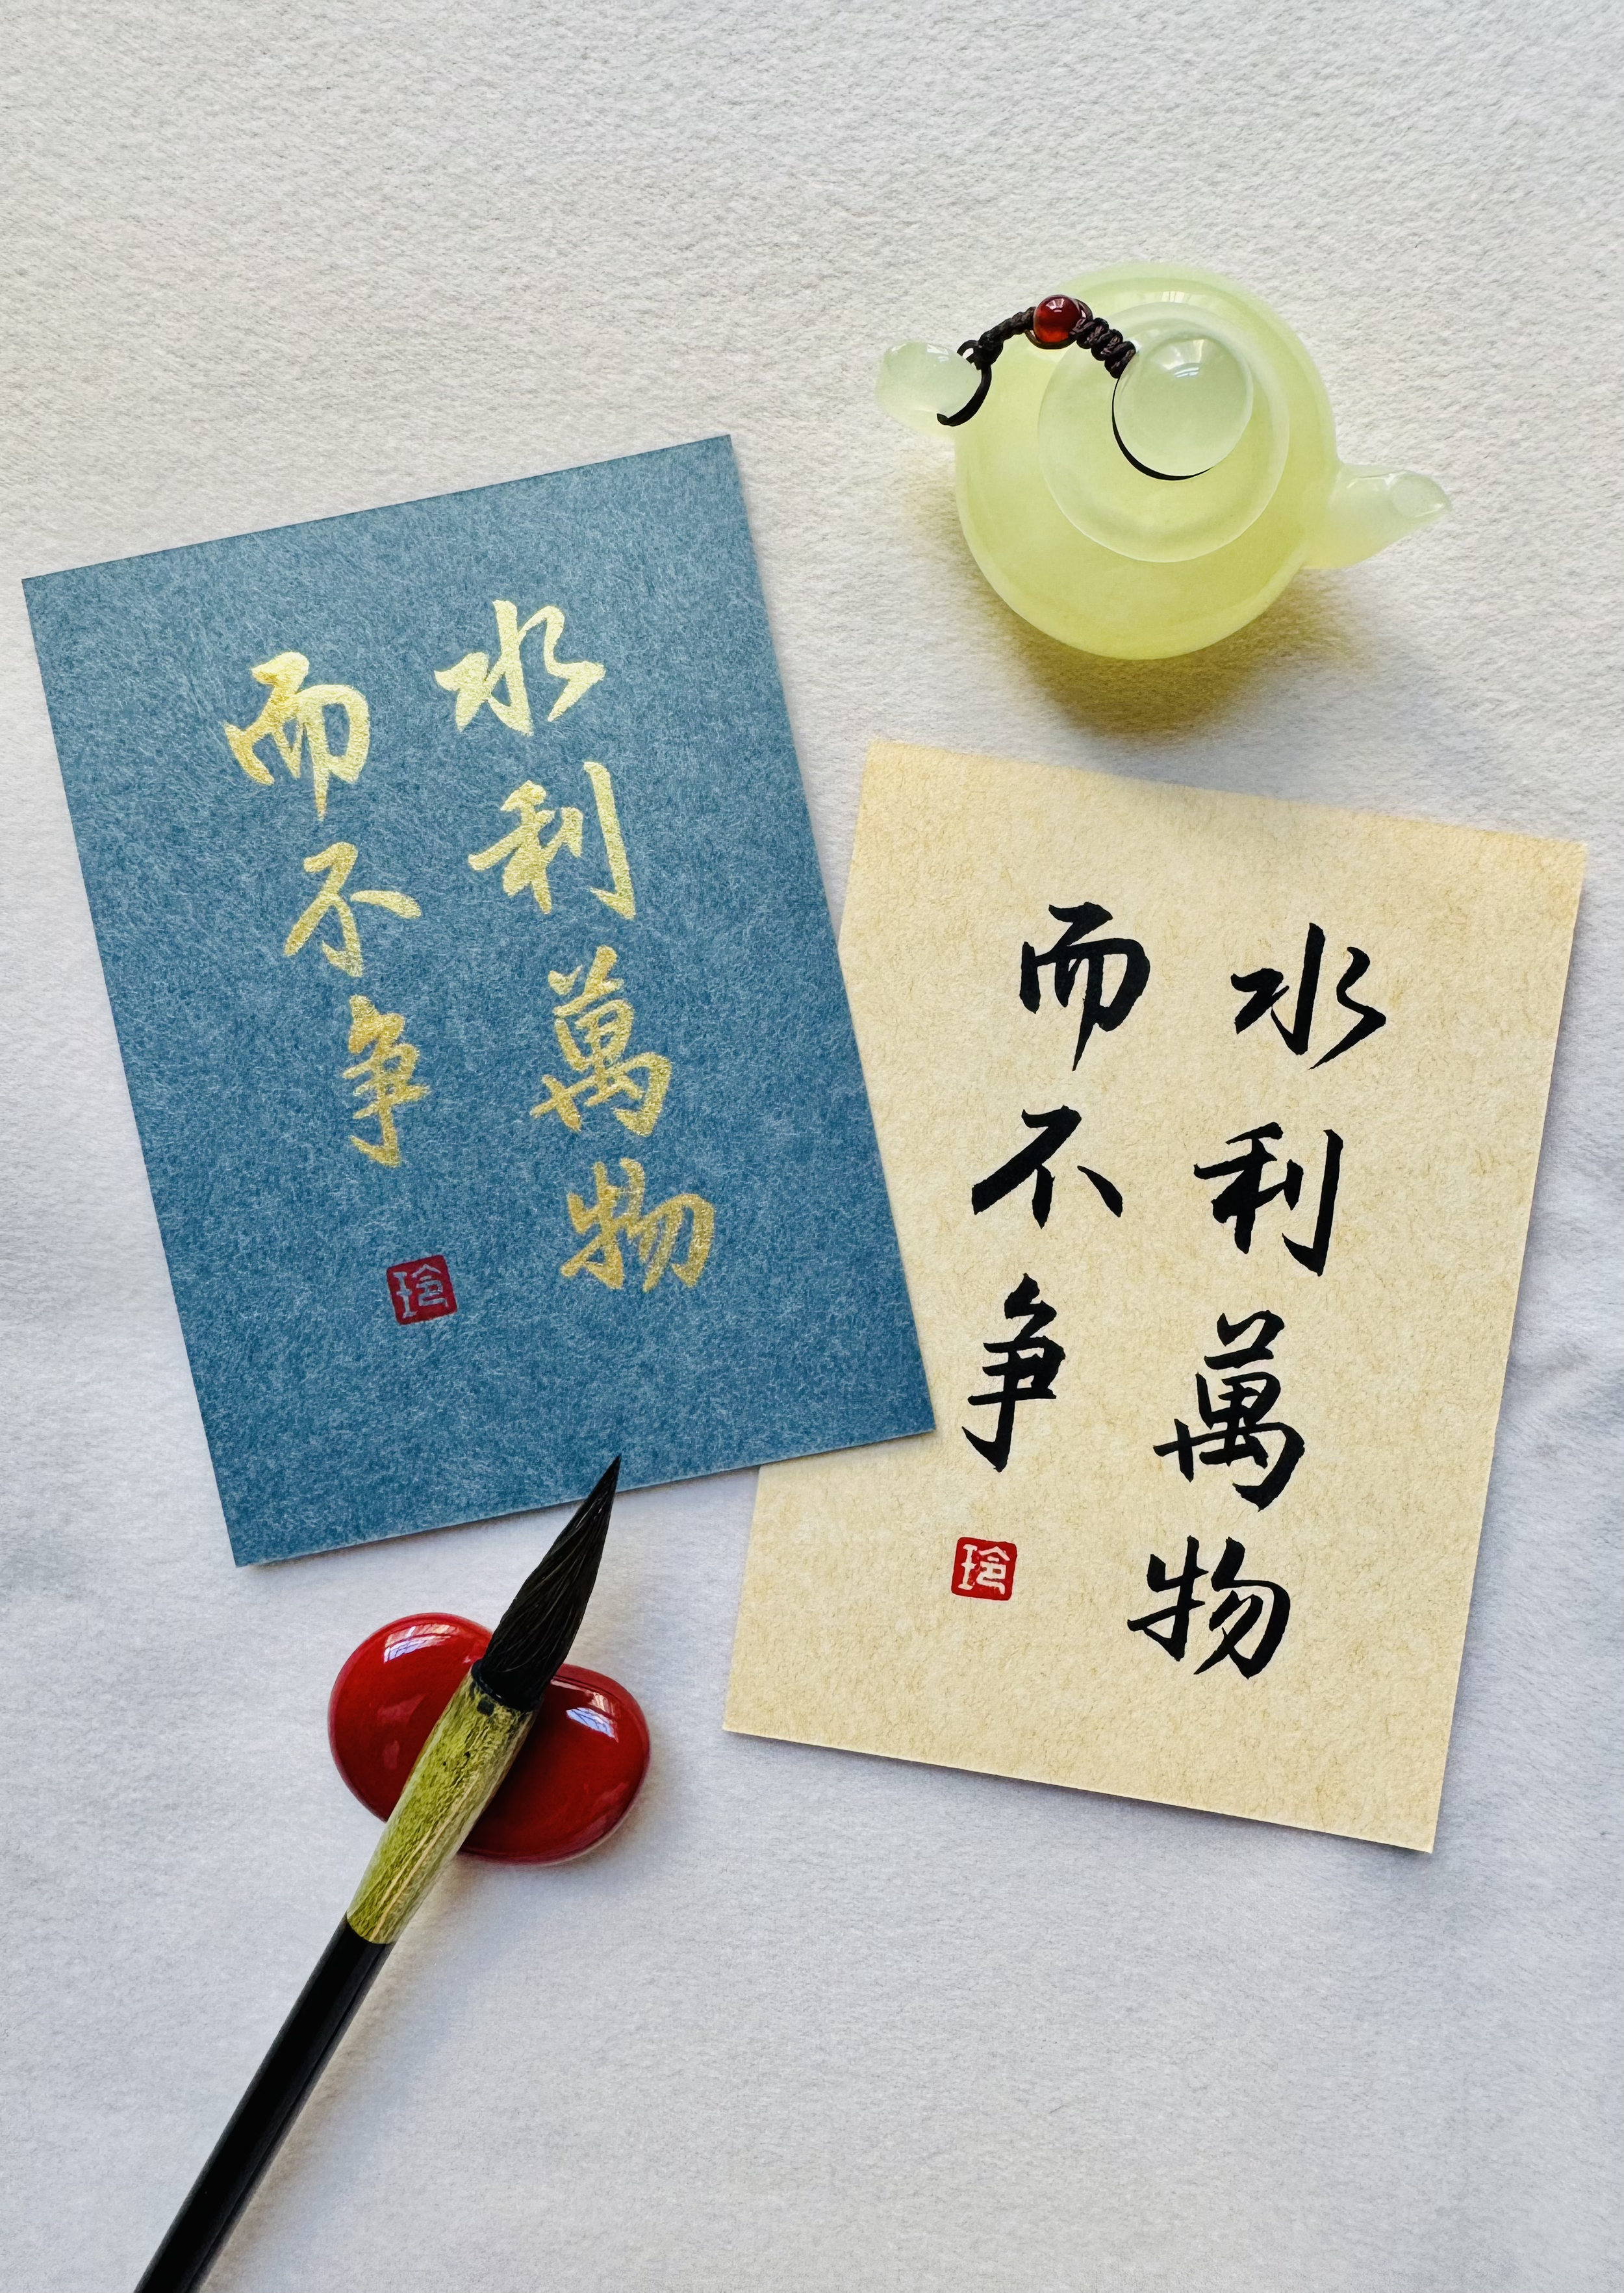 水利萬物
而不争
玲
水利萬物
而不争
玲